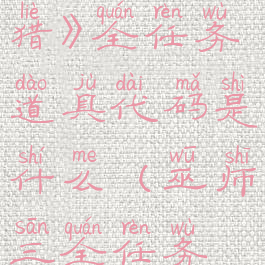 liè quán rèn wù
猎》全任务
dào jù dài mǎ shì
道具代码是
shí me wū shī
什么(巫师
sān quán rèn wù
三全任务